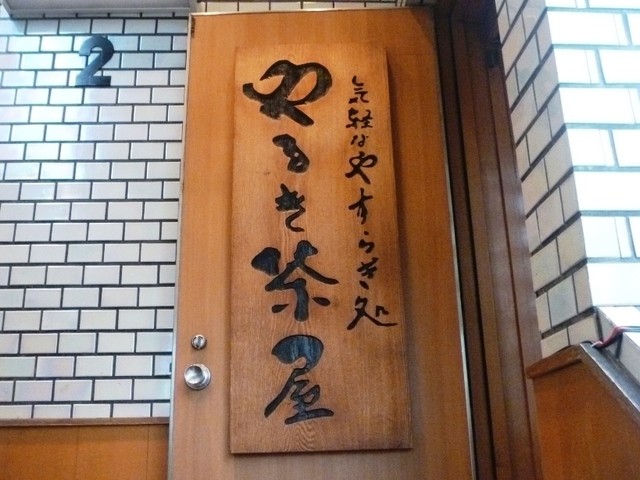 2
気軽なやすらぎ処
やるき茶屋